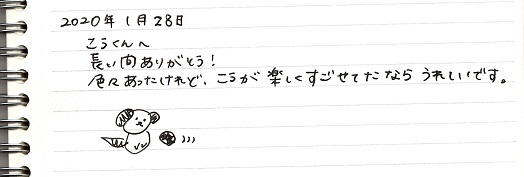 2020年1月28日
こうくんへ
長い間ありがとう！
色々あったけれど、こうが楽しくすごせてたなら うれしいです。